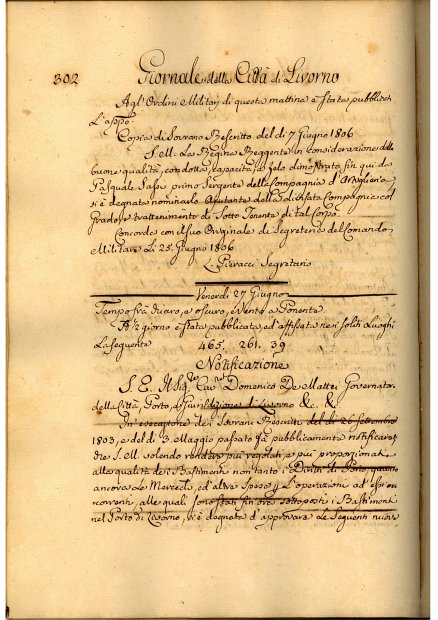 302 Giornale della Città di Livorno
Agl' Ordini Militari di questa mattina è stata pubblicata
L'appo:
Copia di Sovrano Rescritto del dì 7 Giugno 1806
S. M. La Regina Reggente in considerazione delle
buone qualità, condotta, capacità, e zelo dimostrato fin qui da
Pasquale primo Sergente della Compagnia d'Artiglieria,
si è degnata nominarlo Ajutante della suddetta Compagnia col
Grado, e trattenimento di Sotto Tenente di tal Corpo.
Concorda con il suo Originale di Segreteria del Comando
Militare Li 25 Giugno 1806
L. Pieracci Segretario
Venerdì 27 Giugno
Tempo frà chiaro, e oscuro, e Vento a Ponente
giorno è stata pubblicata, ed affissata nei soliti Luoghi
La seguente 465. 261. 39
Notificazione
S. E. Il Sig. Cav. Domenico De Mattei Governator.
della Città, Porto, e Giurisdizione di Livorno &c. &.
In esecuzione dei Sovrani Rescritti del dì 26 Settembre
1803, e del dì 3 Maggio passato fà pubblicamente notificare
che S. M. volendo rendere più regolati, e più proporzionati
alle qualità dei Bastimenti non tanto i Diritti di Porto, quanto
ancora Le Mercedi, ed altre Spese p. L'operazioni ad essi oc-
correnti, alle quali sono stati fin'ora sottoposti i Bastimenti
nel Porto di Livorno, si è degnata d'approvare Le Seguenti